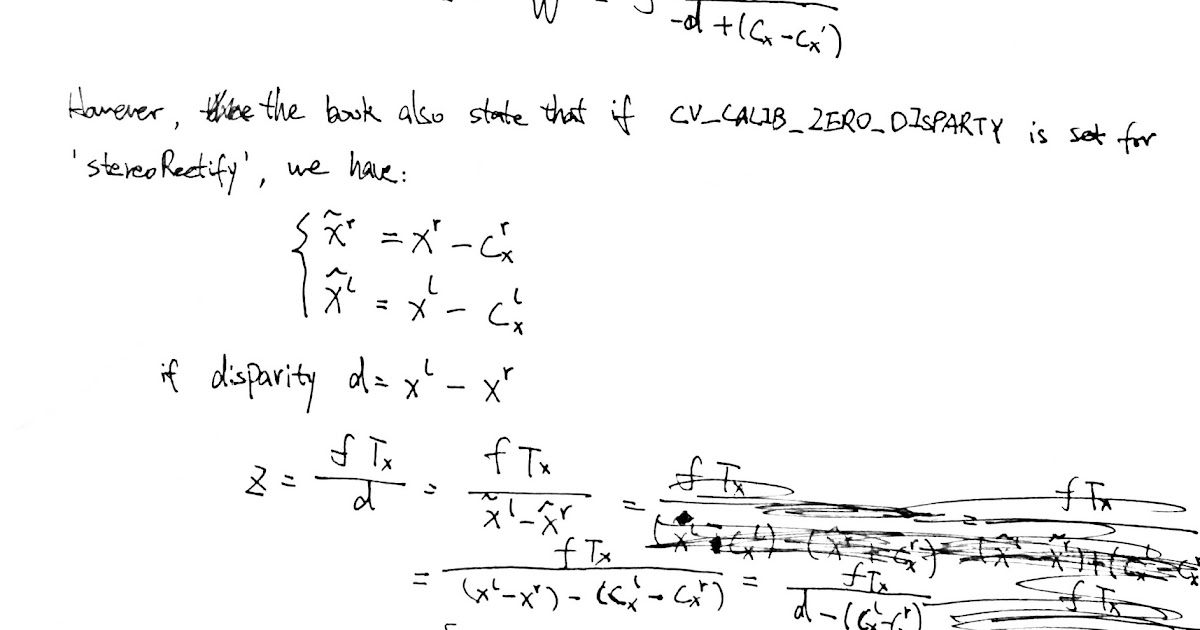 W = -d + (Cx - Cx')
However, the the book also state that if CV_CALIB_ZERO_DISPARTY is set for
'stereoRectify', we have:
x̃ʳ = xʳ - Cxʳ
x̃ˡ = xˡ - Cxˡ
if disparity d = xˡ - xʳ
Z = f Tx / d = f Tx / (x̃ˡ - x̃ʳ) =
= f Tx / ((xˡ - xʳ) - (Cxˡ - Cxʳ)) = f Tx / (d - (Cxˡ - Cxʳ))